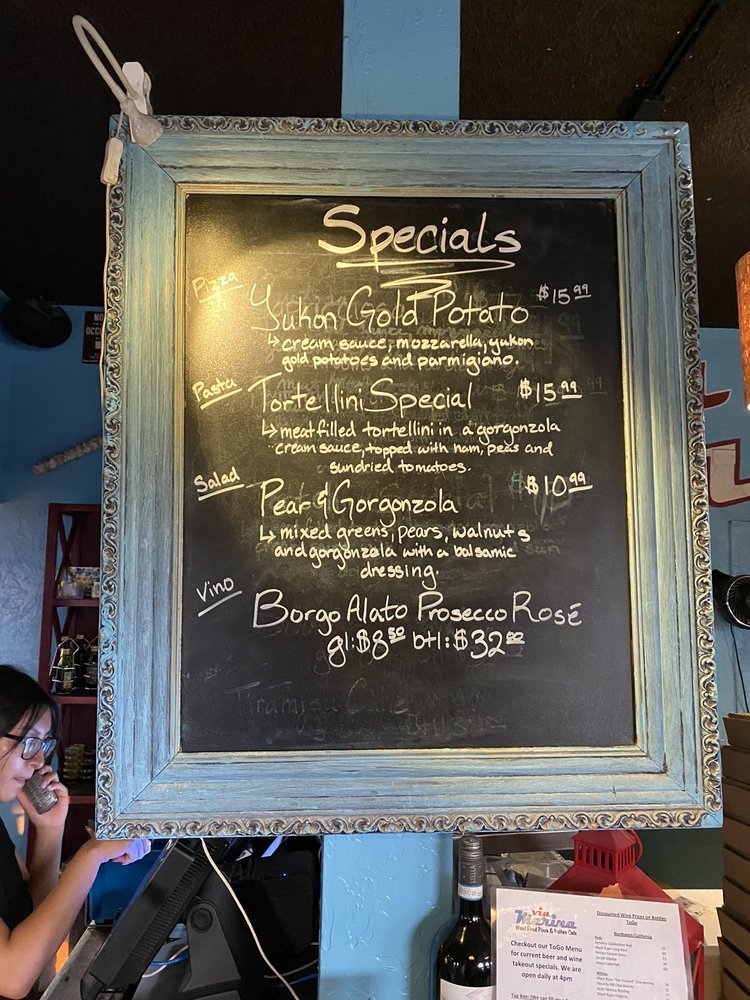 Specials
Pizza
Yukon Gold Potato $15.99
↳ cream sauce, mozzarella, yukon
gold potatoes and parmigiano.
Pasta
Tortellini Special $15.99
↳ meat filled tortellini in a gorgonzola
cream sauce, topped with ham, peas and
sundried tomatoes.
Salad
Pear & Gorgonzola $10.99
↳ mixed greens, pears, walnuts
and gorgonzola with a balsamic
dressing.
Vino
Borgo Alato Prosecco Rosé
gl: $8.50 btl: $32.00
Tiramisu
NO
OCC
via
Marina
Wood Fired Pizza & Italian Cafe
Checkout our ToGo Menu
for current beer and wine
takeout specials. We are
open daily at 4pm
Discounted Wine Prices on Bottles
ToGo
Northwest/California
Reds
Whites